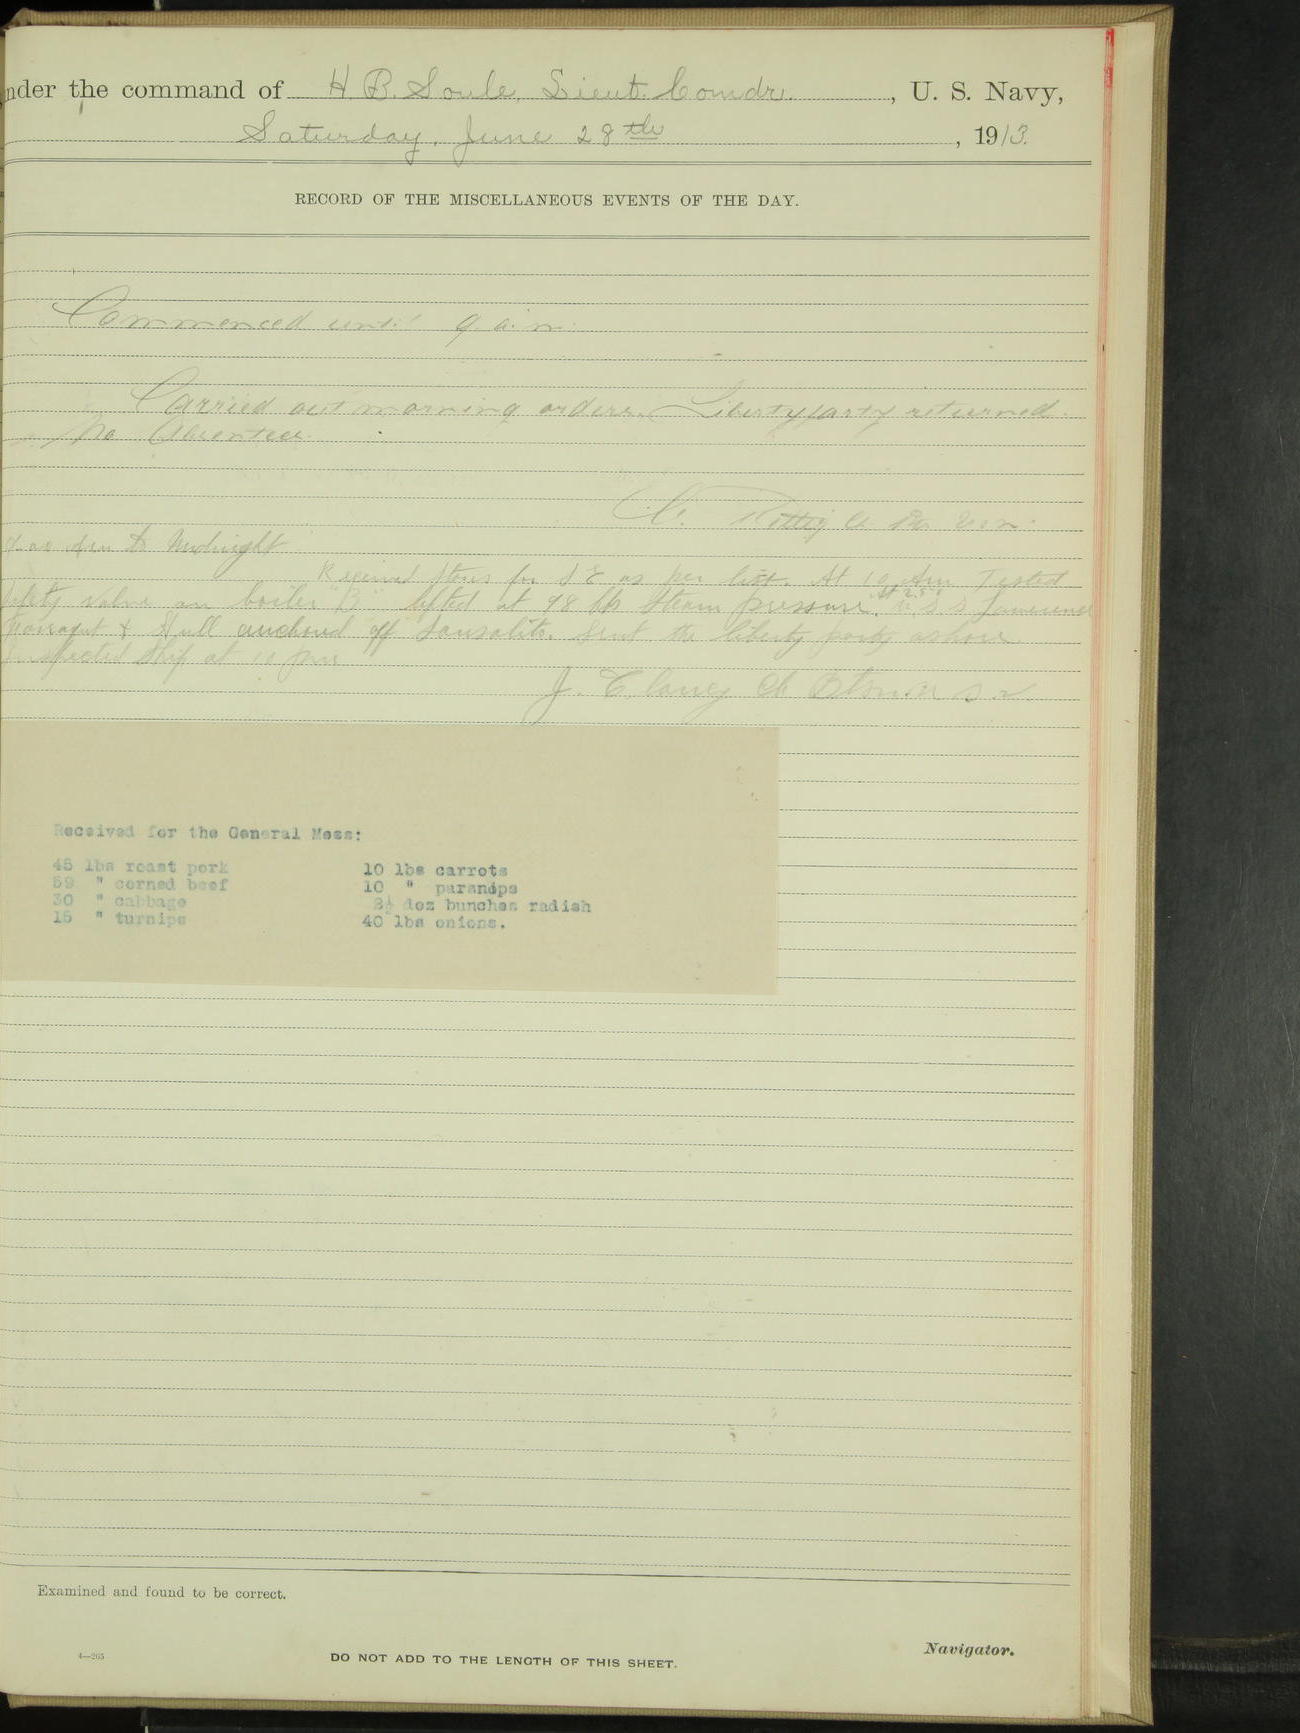 nder the command of H. B. Soule, Lieut. Comdr. , U. S. Navy,
Saturday, June 28th , 1913.
RECORD OF THE MISCELLANEOUS EVENTS OF THE DAY.
Commenced until 9 a.m.
Carried out morning orders. Liberty party returned.
No absentees.
C.
9.00 Am to Midnight
Received stores for S E as per list. At 10 Am Tested
safety valve on boiler "B" lifted at 98 lbs steam pressure. U S S Lawrence
Farragut & Hull anchored off Sausalito. Sent the liberty party ashore
Inspected ship at 10 pm
J. Clancy Ch Btsn U S N.
Received for the General Mess:
45 lbs roast pork 10 lbs carrots
59 " corned beef 10 " parsnips
30 " cabbage 2½ doz bunches radish
15 " turnips 40 lbs onions.
Examined and found to be correct.
Navigator.
4—265
DO NOT ADD TO THE LENGTH OF THIS SHEET.